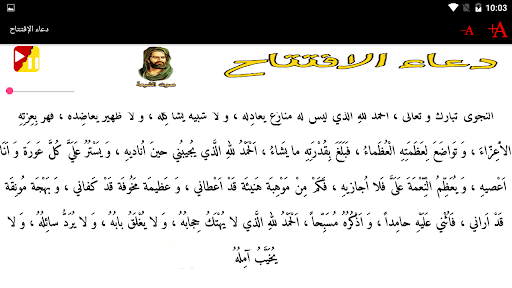 10:03
دعاء الإفتتاح
-A +A
دعاء الافتتاح
صوت الشيعة
النجوى تبارك و تعالى ، الحمد لله الذي ليس له منازع يعادله ، و لا شبيه يشاكله ، و لا ظهير يعاضده ، قهر بعزته
الأعِزّاءَ ، وَ تَواضَعَ لِعَظَمَتِهِ الْعُظَماءُ ، فَبَلَغَ بِقُدْرَتِهِ ما يَشاءُ ، اَلْحَمْدُ للهِ الَّذي يُجيبُني حينَ اُناديهِ ، وَ يَسْتُرُ عَلَيَّ كُلَّ عَورَة وَ اَنَا
اَعْصيهِ ، وَ يُعَظِّمُ الْنِّعْمَةَ عَلَىَّ فَلا اُجازيهِ ، فَكَمْ مِنْ مَوْهِبَة هَنيئَة قَدْ اَعْطاني ، وَ عَظيمَة مَخُوفَة قَدْ كَفاني ، وَ بَهْجَة مُونِقَة
قَدْ اَراني ، فَاُثْني عَلَيْهِ حامِداً ، وَ اَذْكُرُهُ مُسَبِّحاً ، اَلْحَمْدُ للهِ الَّذي لا يُهْتَكُ حِجابُهُ ، وَ لا يُغْلَقُ بابُهُ ، وَ لا يُرَدُّ سائِلُهُ ، وَ لا
يُخَيَّبُ آمِلُهُ